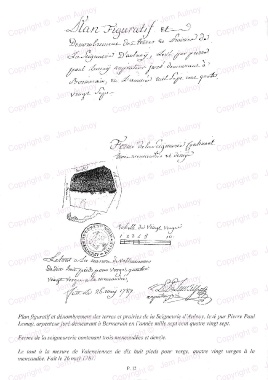 Plan Figuratif et
Dénombrement des terres et prairies de
La Seigneurie D'aulnoy, levé par pierre
paul Lemay arpenteur juré demeurant à
en L'année mil sept cent quatre
vingt sept.
Ferme de la Seigneurie Contenant
trois mencaudées et demy
Echelle de Vingt verges
Le tout à la mesure de Valenciennes
de dix huit pieds pour verge, quatre
vingt verges à la mencaudée
fait Le 26 may 1787
Plan figuratif et dénombrement des terres et prairies de la Seigneurie d'Aulnoy, levé par Pierre Paul
Lemay, arpenteur juré demeurant à en l'année mille sept cent quatre vingt sept.
Ferme de la seigneurie contenant trois mencaudées et demie.
Le tout à la mesure de Valenciennes de dix huit pieds pour verge, quatre vingt verges à la
mencaudée. Fait le 26 mai 1787.